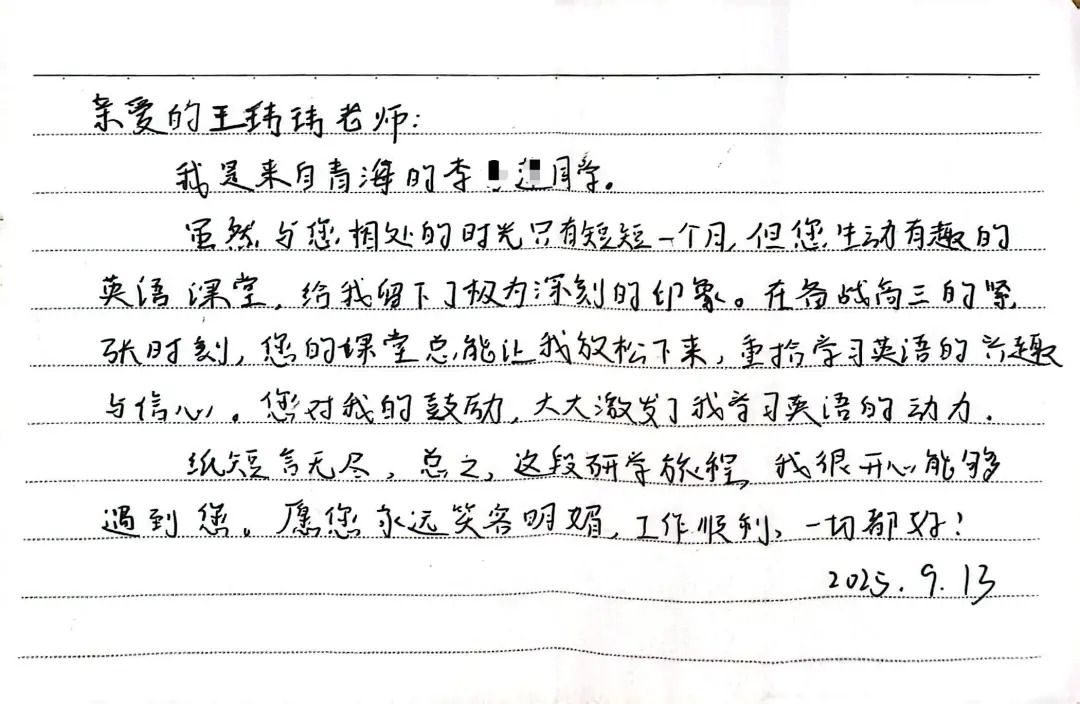 亲爱的王玮玮老师:
我是来自青海的李 同学。
虽然与您相处的时光只有短短一个月,但您生动有趣的
英语课堂,给我留下了极为深刻的印象。在备战高三的紧
张时刻,您的课堂总能让我放松下来,重拾学习英语的兴趣
与信心。您对我的鼓励,大大激发了我学习英语的动力.
纸短言无尽,总之,这段研学旅程,我很开心能够
遇到您。愿您永远笑容明媚,工作顺利,一切都好!
2025.9.13